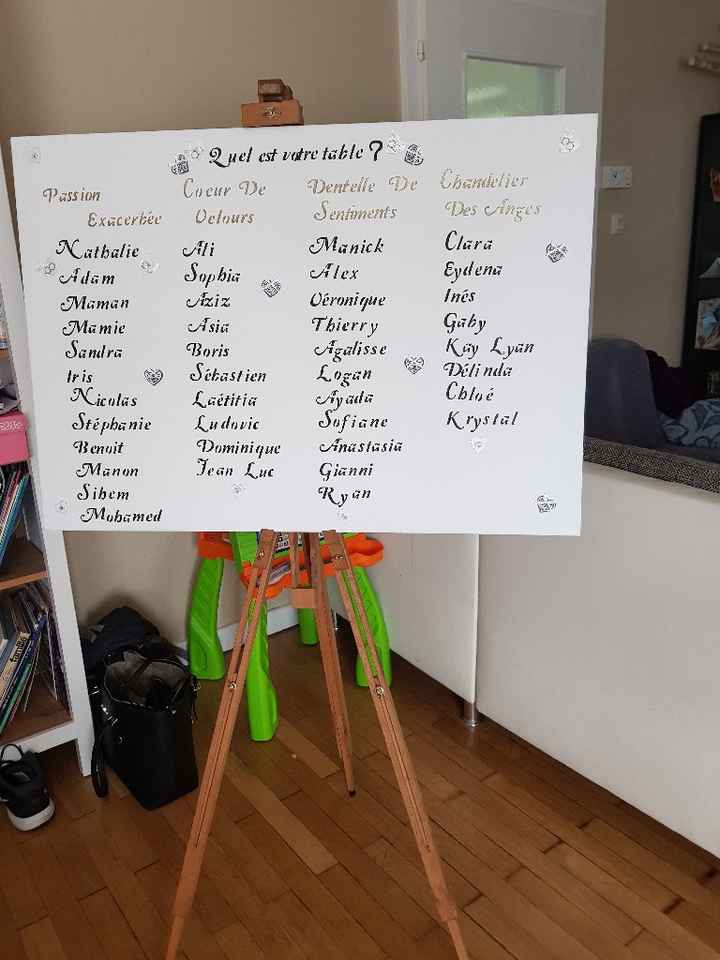 Quel est votre table ?
Passion
Exacerbée
Nathalie
Adam
Maman
Mamie
Sandra
Iris
Nicolas
Stéphanie
Benoit
Manon
Sihem
Mohamed
Coeur De
Velours
Ali
Sophia
Aziz
Asia
Boris
Sébastien
Laëtitia
Ludovic
Dominique
Jean Luc
Dentelle De
Sentiments
Manick
Alex
Véronique
Thierry
Agalisse
Logan
Ayada
Sofiane
Anastasia
Gianni
Ryan
Chandelier
Des Anges
Clara
Eydena
Inés
Gaby
Kay Lyan
Délinda
Chloé
Krystal